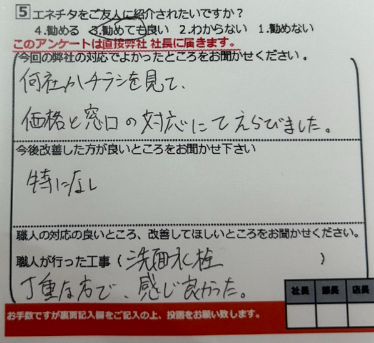 5 エネチタをご友人に紹介されたいですか？
4.勧める 3.勧めても良い 2.わからない 1.勧めない
このアンケートは直接弊社 社長に届きます。
今回の弊社の対応でよかったところをお聞かせください。
何社かチラシを見て、
価格と窓口の対応にてえらびました。
今後改善した方が良いところをお聞かせ下さい
特になし
職人の対応の良いところ、改善してほしいところをお聞かせください。
職人が行った工事（洗面水栓）
丁重な方で、感じ良かった。
社長 部長 店長
お手数ですが裏面記入欄をご記入の上、投函をお願い致します。